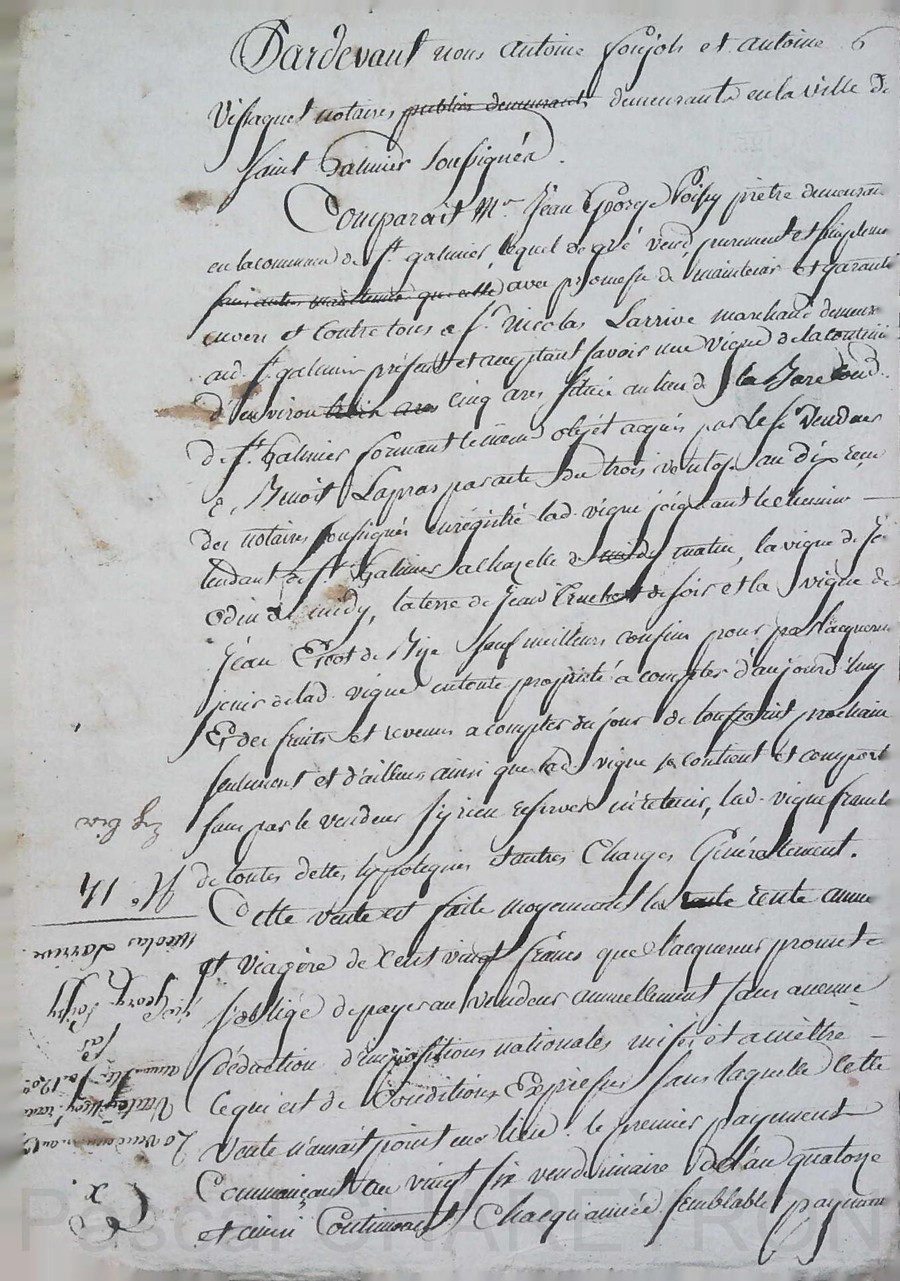 Pardevant nous antoine soujols et antoine 6
Vissaguet notaires publics demeurants demeurants en la ville de
Saint Galmier soussignés.
Comparait Mr. Jean George Poissy prêtre demeurant
en la commune de St. galmier, lequel de gré vend purement et simplemt
sans autre maintenue que celle avec promesse de maintenir et garantir
envers et contre tous a sr. Nicolas Larrive marchand demeur
aud. St. galmier présent et acceptant savoir une Vigne de la contenu
d'environ trois ares cinq ares située au lieu de la Bare comd.
de St. Galmier formant le même objet acquis par led. Sr. Vendeur
de Benoit Lapras par acte du trois ventose an dix reçu
des notaires soussignés enrégistré lad. vigne joignant le chemin
tendant de St. Galmier a chazelle de midy matin, la vigne de Je
Odin de midy, la terre de Jean de soir et la vigne de
Jean de Bise sauf meilleurs confins pour par l'acquereur
jouir de lad. vigne en toute propriété a compter d'aujourd'huy
Et des fruits et revenus a compter du jour de toussaint prochain
seulement et d'ailleurs ainsi que lad. vigne se contient et comporte
sans par le vendeur s'y rien reserver ni retenir, lad. vigne franche
de toutes dettes hypoteques & autres Charges Généralement.
Cette vente est faite moyennant la rente annu
et Viagère de cent vingt francs que l'acquereur promet &
s'oblige de payer au vendeur annuellement sans aucune
déduction d'impositions nationales mises et a mettre
ce qui est de Conditions Expresses sans laquelle cette
Vente n'aurait point eu lieu. le premier payement
Commençant au vingt six vendemiaire de l'an quatorze
et ainsi Continuant Chacque année semblable payment
N° 14
Nicolas Larrive
George Poissy
Pascal CHAREYRON